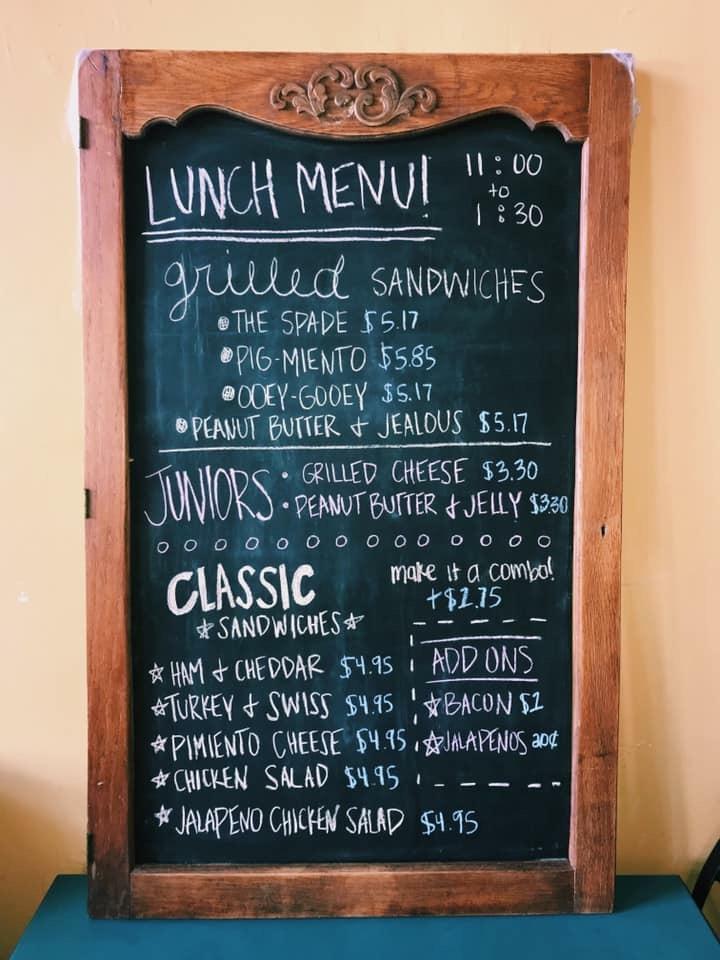 LUNCH MENU!
11:00
to
1:30
grilled SANDWICHES
THE SPADE $5.17
PIG-MIENTO $5.85
OOEY-GOOEY $5.17
PEANUT BUTTER & JEALOUS $5.17
JUNIORS
• GRILLED CHEESE $3.30
• PEANUT BUTTER & JELLY $3.30
CLASSIC
☆SANDWICHES☆
make it a combo!
☆ HAM & CHEDDAR $4.95
☆TURKEY & SWISS $4.95
☆ PIMIENTO CHEESE $4.95
☆ CHICKEN SALAD $4.95
☆ JALAPENO CHICKEN SALAD $4.95
ADD ONS
☆BACON
☆JALAPEÑOS